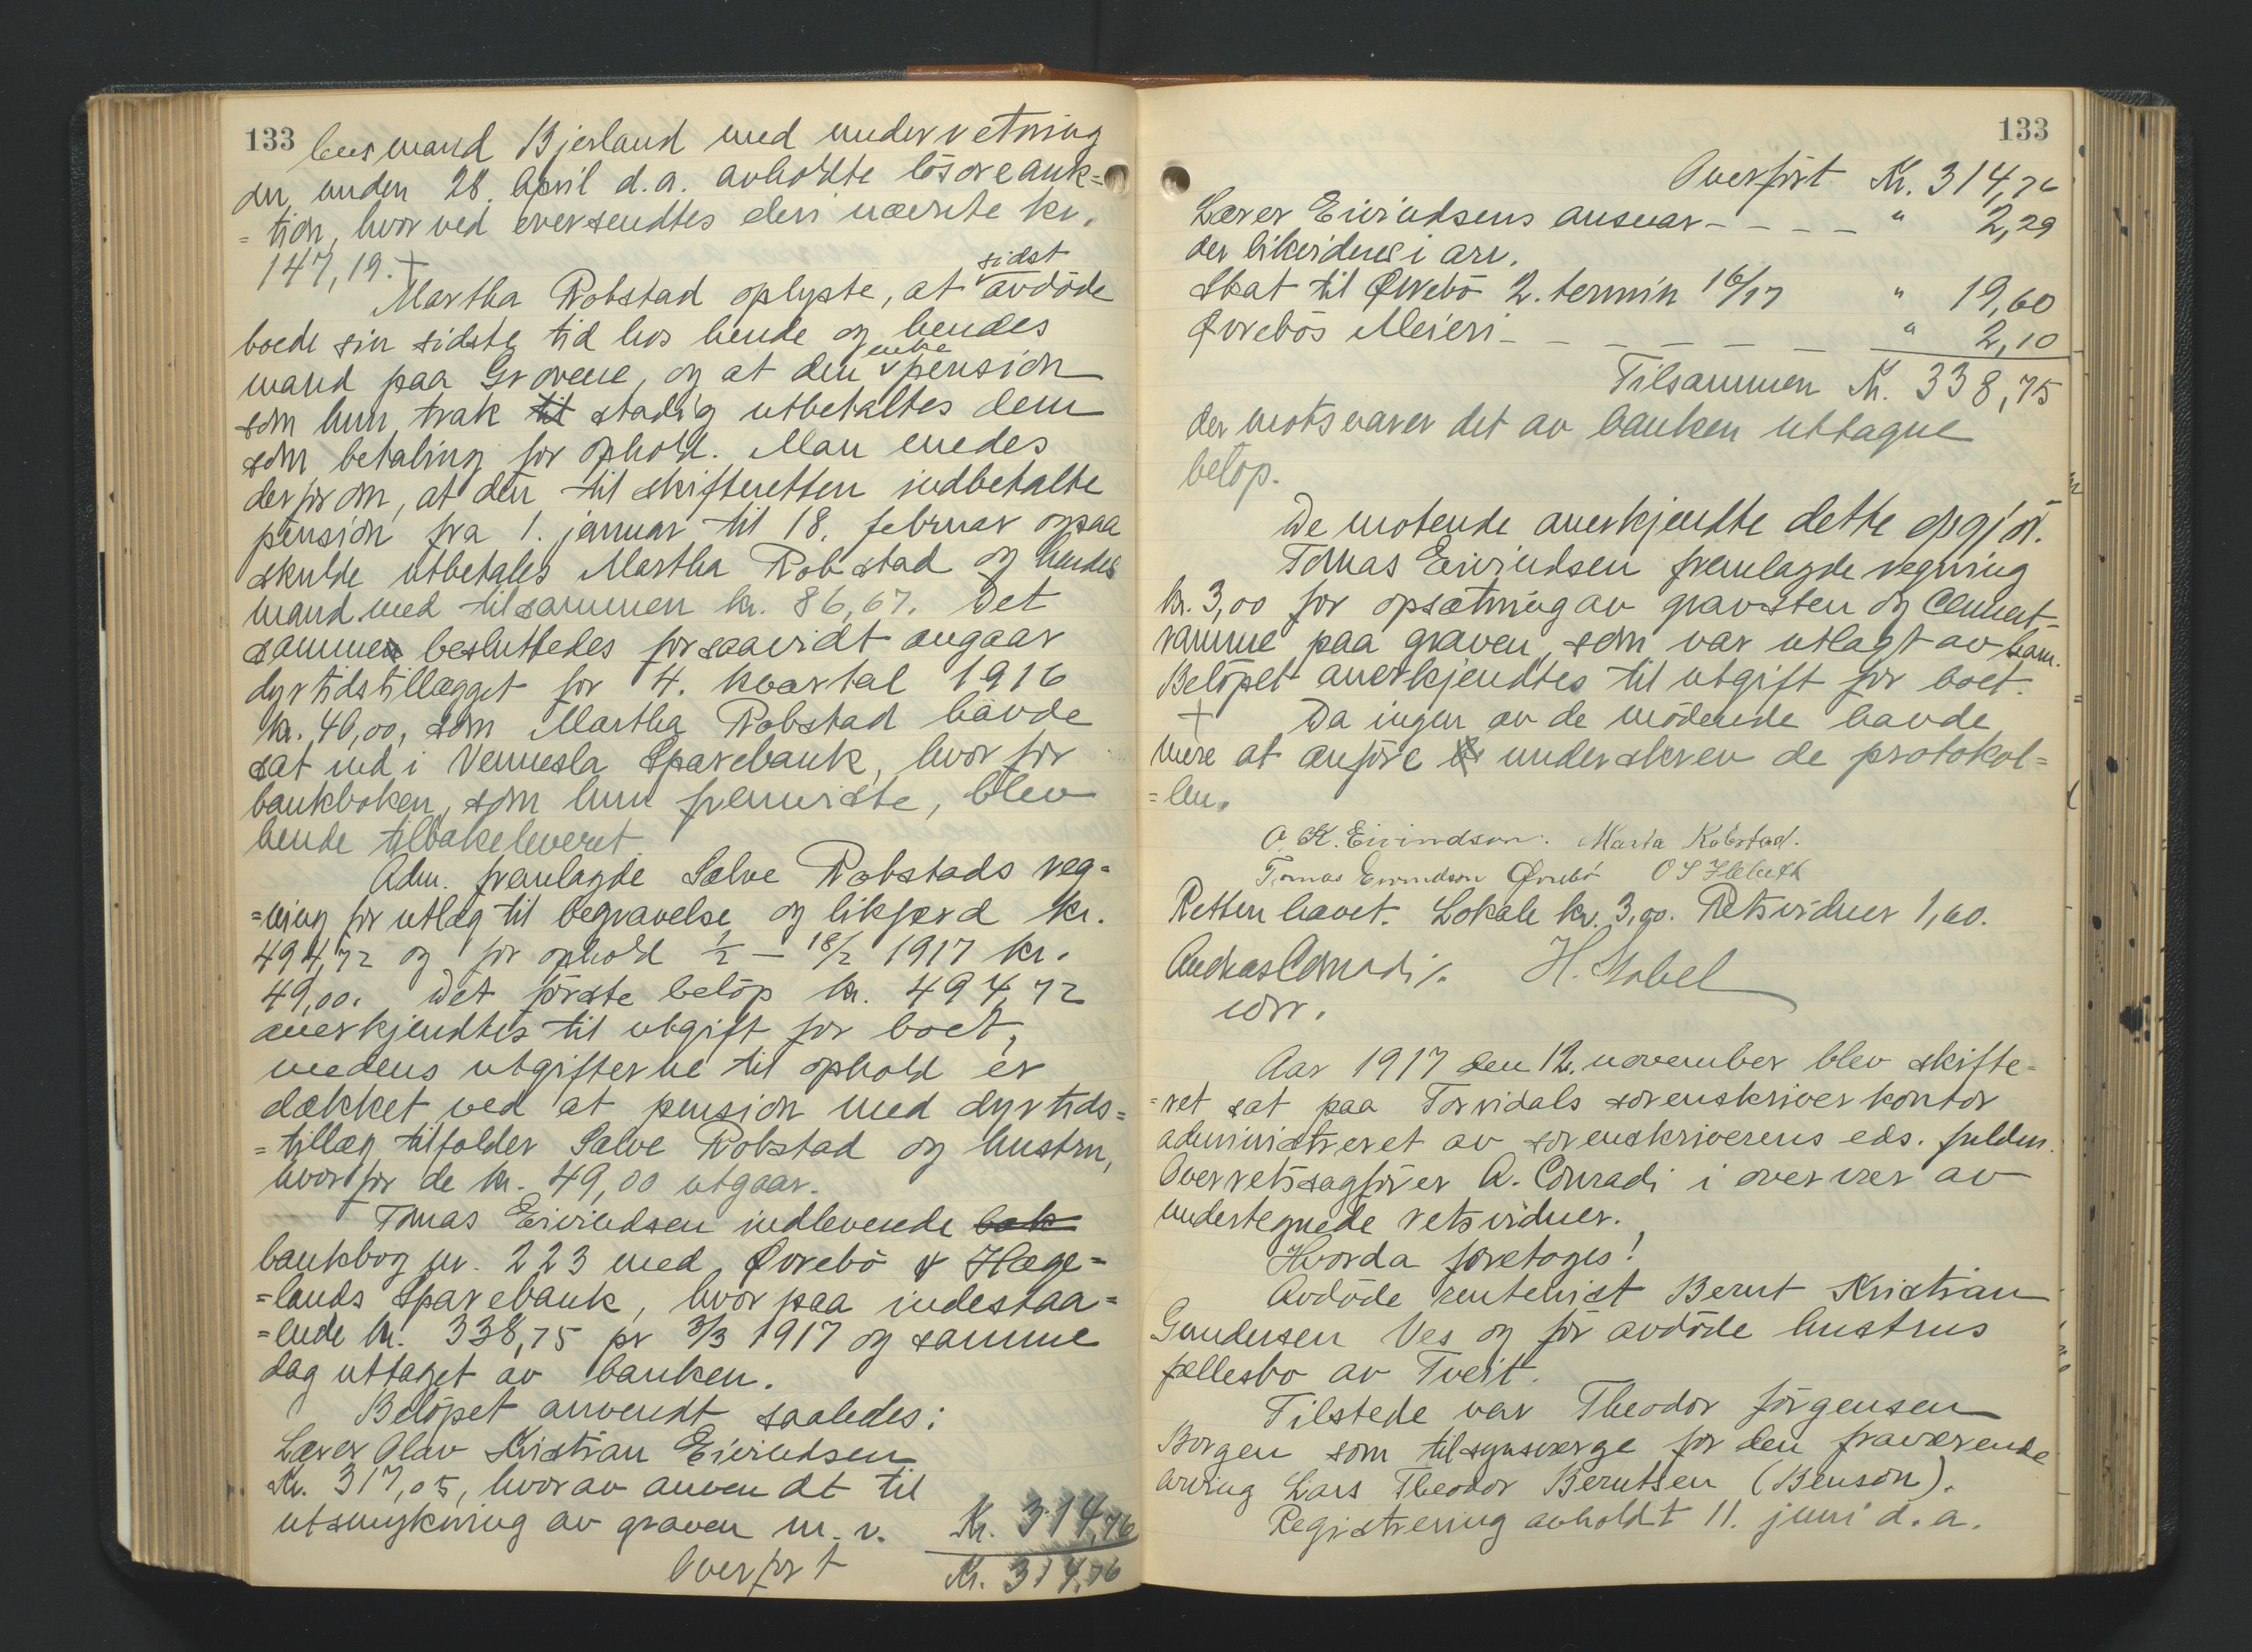 133 lensmand Bjerland med underretning
om under 28. April d.a. avholdte lösöreauk=
=tion, hvorved oversendtes den nævnte kr.
147,19. +
Martha Robstad oplyste, at sidst avdöde
boede sin sidste tid hos hende og hendes
mand paa Grovene, og at den enke pension
som hun trak til stadig utbetaltes dem
som betaling for ophold. Man enedes
derfor om, at den til skifteretten indbetalte
pension fra 1. januar til 18. februar ogsaa
skulde utbetales Martha Robstad og hendes
mand med tilsammen kr. 86,67. Det
samme besluttedes forsaavidt angaar
dyrtidstillægget for 4. kvartal 1916
kr. 40,00, som Martha Robstad havde
sat ind i Vennesla Sparebank, hvorfor
bankboken, som hun fremviste, blev
hende tilbakeleveret.
Adm. fremlagde Salve Robstads reg=
=ning for utlæg til begravelse og likfærd kr.
494,72 og for ophold 1/2 – 18/2 1917 kr.
49,00. Det förste belöp kr. 494,72
anerkjendtes til utgift for boet,
medens utgifterne til ophold er
dækket ved at pension med dyrtids=
=tillæg tilfalder Salve Robstad og hustru,
hvorfor de kr. 49,00 utgaar.
Tomas Eivindsen indleverede bak
bankbog nr. 223 med Øvrebö & Hæge=
=lands Sparebank, hvorpaa indestaa=
=ende kr. 338,75 pr 3/3 1917 og samme
dag uttaget av banken.
Belöpet anvendt saaledes:
Lærer Olav Kristian Eivindsen
Kr. 317,05, hvorav anvendt til
utsmykning av graven m.v. Kr. 314,76
Overfört Kr. 314,76
133
Overfört Kr. 314,76
Lærer Eivindsens ansvar - - - - " 2,29
der likvideres i arv.
Skat til Øvrebö 2. termin 16/17 " 19,60
Øvrebös Meieri - - - - - - " 2,10
Tilsammen Kr. 338,75
der motsvarer det av banken uttagne
belöp.
De mötende anerkjendte dette opgjör.
Tomas Eivindsen fremlagde regning
kr. 3,00 for opsætning av gravsten og Cement-
ramme paa graven, som var utlagt av ham.
Belöpet anerkjendtes til utgift for boet.
+ Da ingen av de mödende havde
mere at anföre underskrev de protokol=
=len.
O. K. Eivindson. Marta Robstad.
Tomas Eivindson Øvrebö O S
Retten hævet. Lokale kr. 3,00. Retsvidner 1,60.
Andreas Conradi /. H. Stabel
corr.
Aar 1917 den 12. november blev skifte=
=ret sat paa Torridals sorenskriverkontor
administreret av sorenskriverens eds. fuldm.
Overretssagförer A. Conradi i overvær av
undertegnede retsvidner.
Hvorda foretoges!
Avdöde rentenist Bernt Kristian
Gundersen Ves og för avdöde hustrus
fællesbo av Tveit.
Tilstede var Theodor Jörgensen
Borgen som tilsynsværge for den fraværende
arving Lars Theodor Berntsen (Benson).
Registrering avholdt 11. juni d.a.